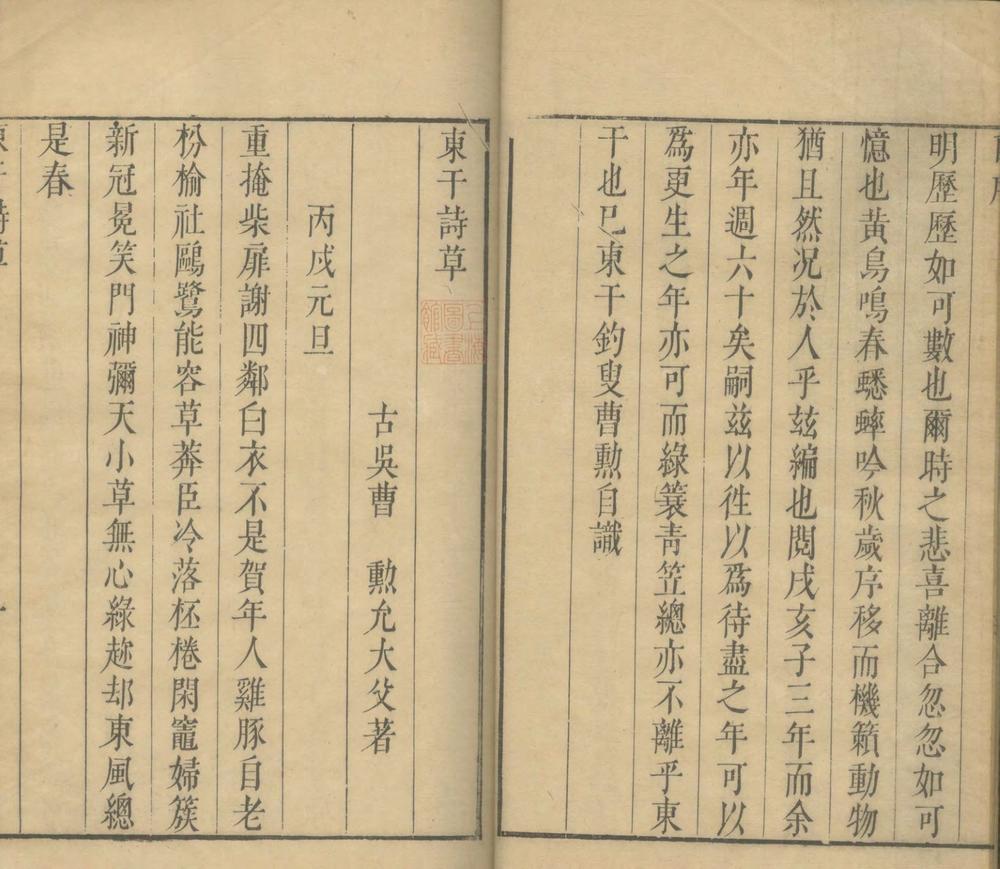 明歷歷如可數也爾時之悲喜離合忽忽如可
憶也黃鳥鳴春蟋蟀吟秋歲序移而機籟動物
猶且然况於人乎玆編也閱戌亥子三年而余
亦年週六十矣嗣兹以徃以爲待盡之年可以
爲更生之年亦可而綠簑青笠總亦不離乎東
干也已東干釣叟曹勲自識
東干詩草
古吳曹 勲允大父著
丙戌元旦
重掩柴扉謝四鄰白衣不是賀年人雞豚自老
枌榆社鷗鷺能容草莽臣冷落杯棬閑竈婦簇
新冠冕笑門神彌天小草無心綠趂却東風總
是春